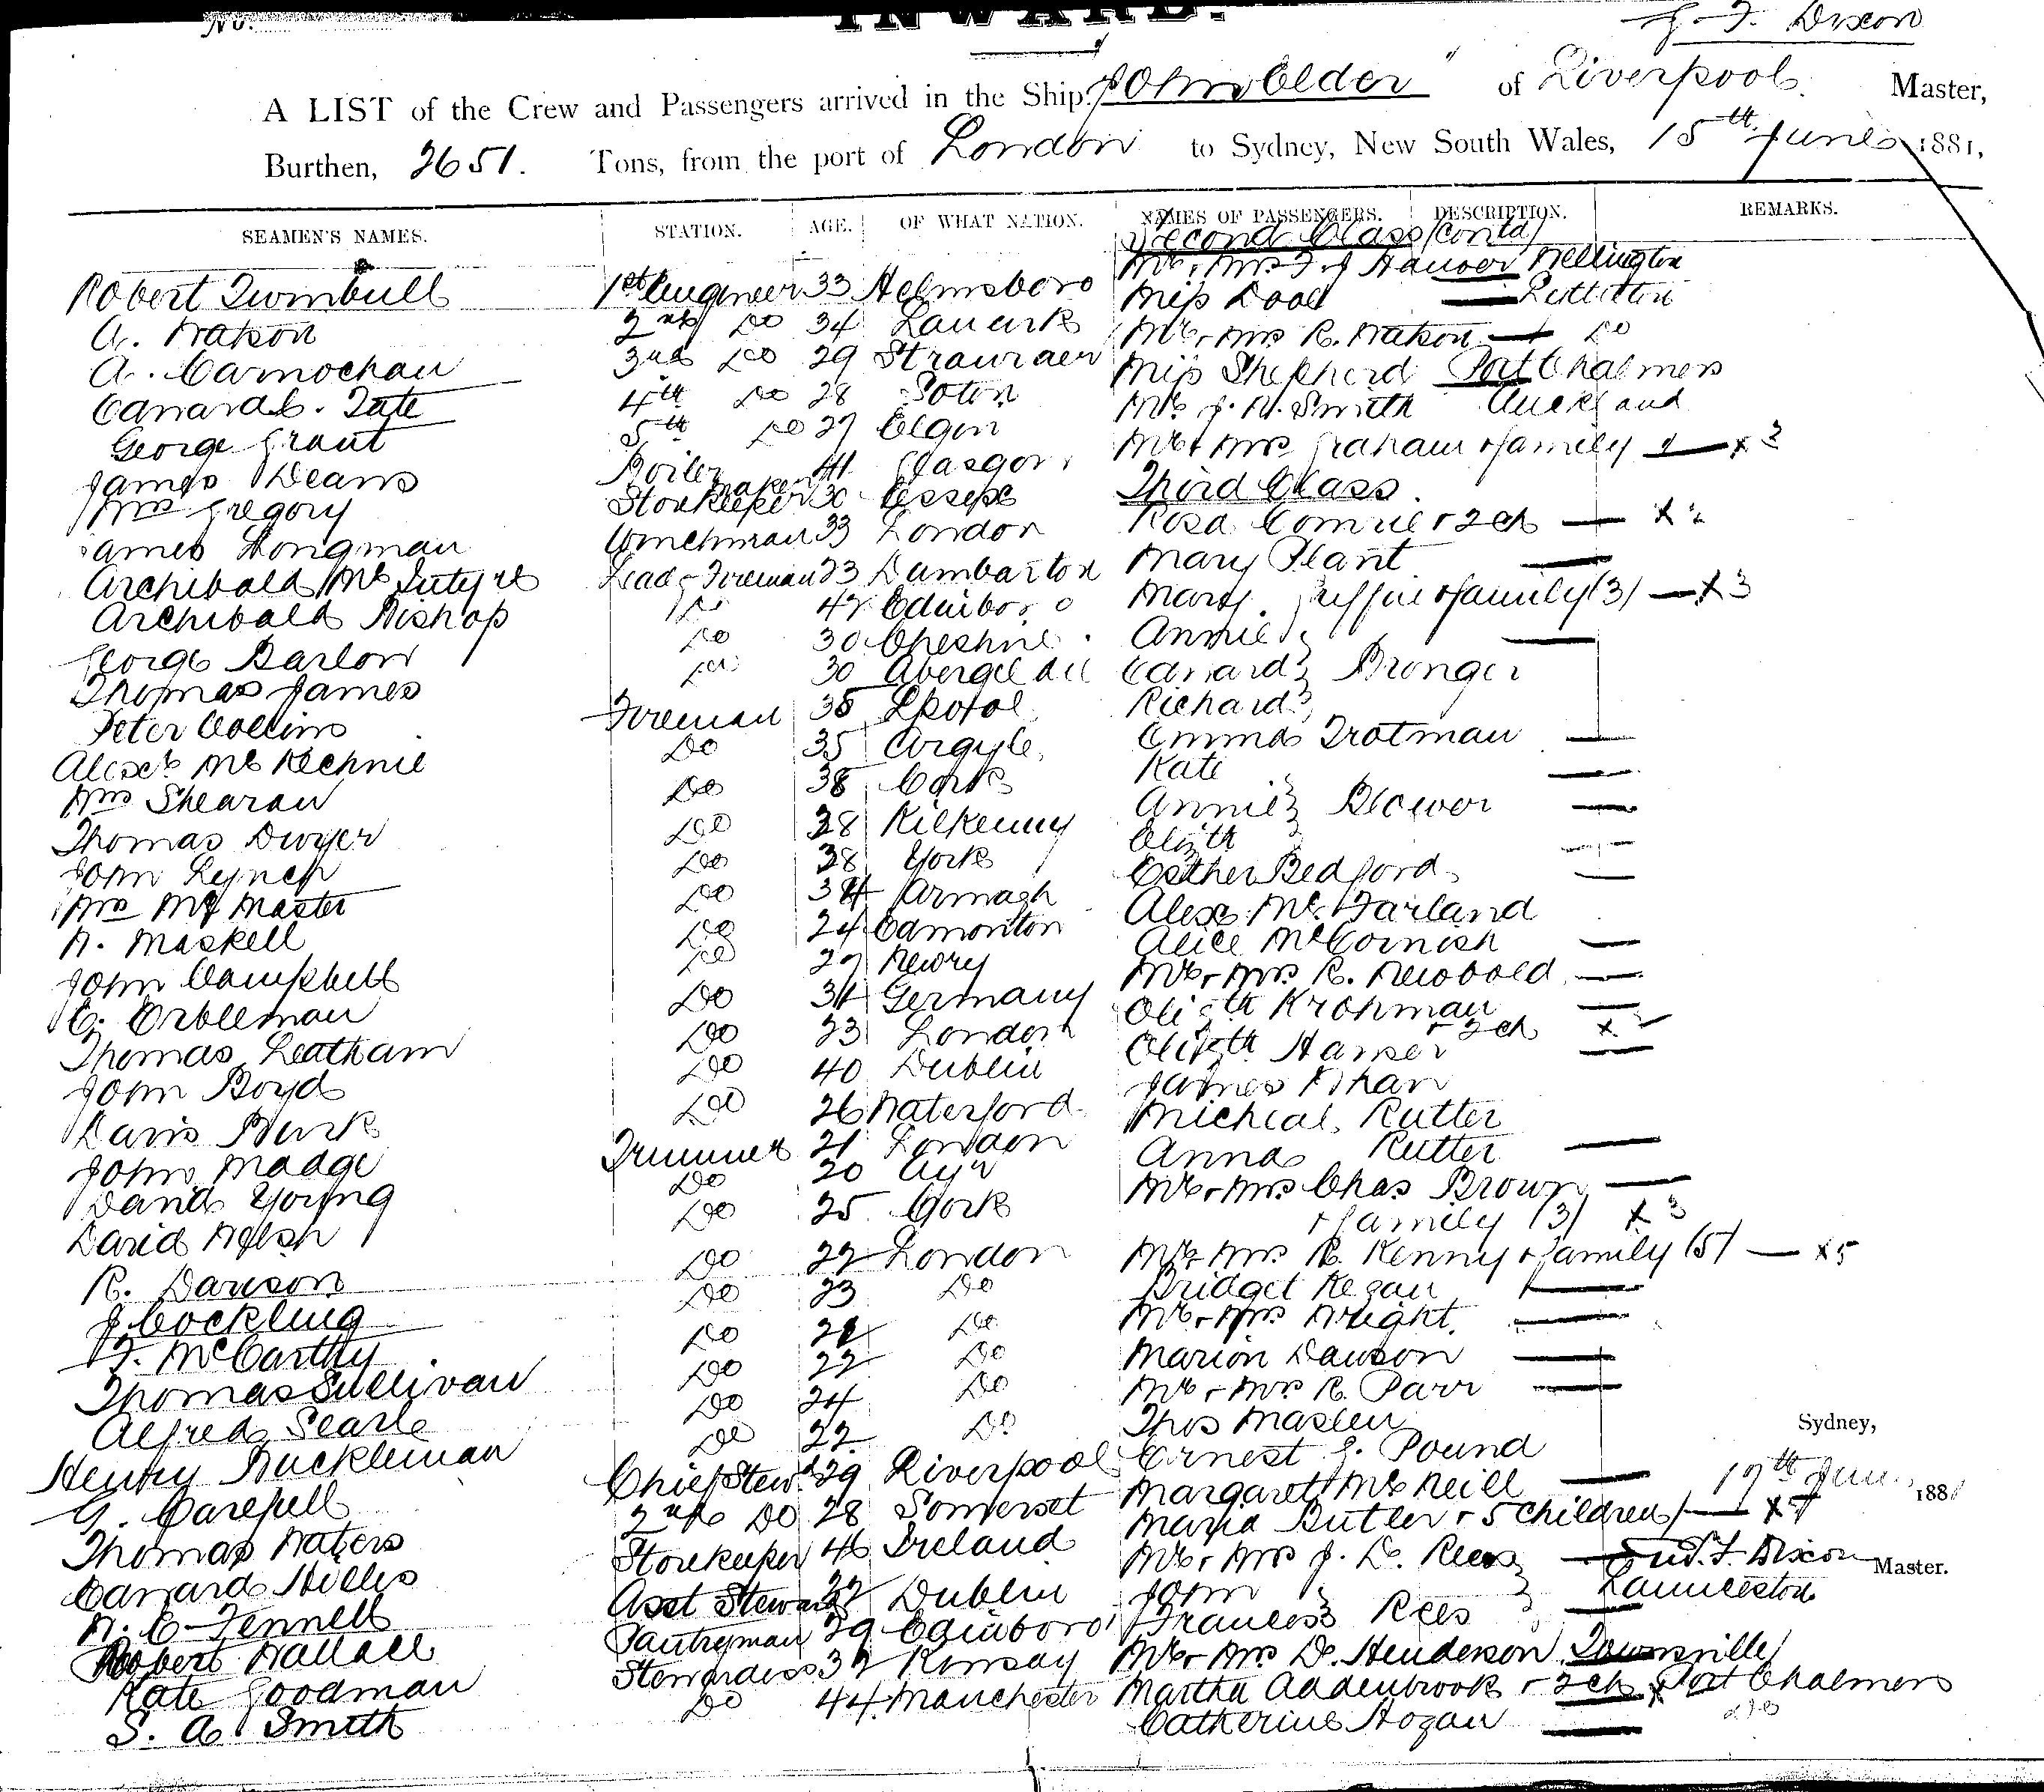 No.
INWARD.
J. F. Dixon
A LIST of the Crew and Passengers arrived in the Ship "John Elder" of Liverpool. Master,
Burthen, 2651. Tons, from the port of London to Sydney, New South Wales, 15th June 1881,
SEAMEN'S NAMES. STATION. AGE. OF WHAT NATION. NAMES OF PASSENGERS. DESCRIPTION. REMARKS.
Second Class (contd)
Robert Turnbull 1st Engineer 33 Helmsboro Mr & Mrs F. J Wellington
A. Watson 2nd Do 34 Lanark Miss Dodd
A. Carnochan 3rd Do 29 Stranraer Mr & Mrs R. Watson Do
Edward C. Tate 4th Do 28 Soton Miss Shepherd Port Chalmers
George Grant 5th Do 27 Elgin Mr J. W. Smith Auckland
James Deans Boiler maker 41 Glasgow Mr & Mrs Graham & family x 3
Wm Gregory Storekeeper 30 Essex Third Class.
James Longman Winchman 33 London Rosa Comrie & 2 ch x 2
Archibald McIntyre Leadg Fireman 23 Dumbarton Mary Plant
Archibald Bishop Do 42 Edinboro Mary & family (3) x 3
George Barlow Do 30 Cheshire Annie
Thomas James Do 30 Edward Bronger
Peter Collins Fireman 35 Richard
Alexr McKechnie Do 35 Argyle Emma Trotman
Wm Shearan Do 38 Cork Kate
Thomas Dwyer Do 28 Kilkenny Annie Blower
John Lynch Do 38 York Elizth
Wm McMaster Do 34 Armagh Esther Bedford
W. Maskell Do 24 Edmonton Alexr McFarland
John Campbell Do 27 Newry Alice McCornish
E. Erbleman Do 34 Germany Mr & Mrs R. Newbold
Thomas Leatham Do 23 London Elizth Krohman
& 2 ch x 2
John Boyd Do 40 Dublin Elizth Hanser
Davis Burk Do 26 Waterford James
John Madge Trimmer 21 London Micheal Rutter
David Young Do 20 Ayr Anna Rutter
David Welsh Do 25 Cork Mr & Mrs Chas Brown
& family (3) x 3
R. Davison Do 22 London Mr & Mrs R. Kenny & family (5) x 5
J Cockling Do 23 Do Bridget Regan
F. McCarthy Do 21 Do Mr & Mrs Wright
Thomas Sullivan Do 22 Do Marion Dawson
Alfred Searle Do 24 Do Mr & Mrs R. Parr
Henry Buckleman Do 22 Do Thos Maslen
Sydney,
G. Carefull Chief Stewd 29 Liverpool Ernest J. Pound
17th June 1881
Thomas Waters 2nd Do 28 Somerset Margaret McNeill
Edward Hilles Storekeeper 46 Ireland Maria Butler & 5 children
W. C. Fennell Asst Steward 22 Dublin Mr & Mrs J. D. Rees J. F. Dixon Master.
John Launceston
Robert Wallace Pantryman 29 Edinboro Frances Rees
Kate Goodman Stewardess 32 Mr & Mrs D. Henderson Townsville
S. A. Smith Do 44 Manchester Martha Addenbrook & 2 ch x Port Chalmers
Catherine Hogan do